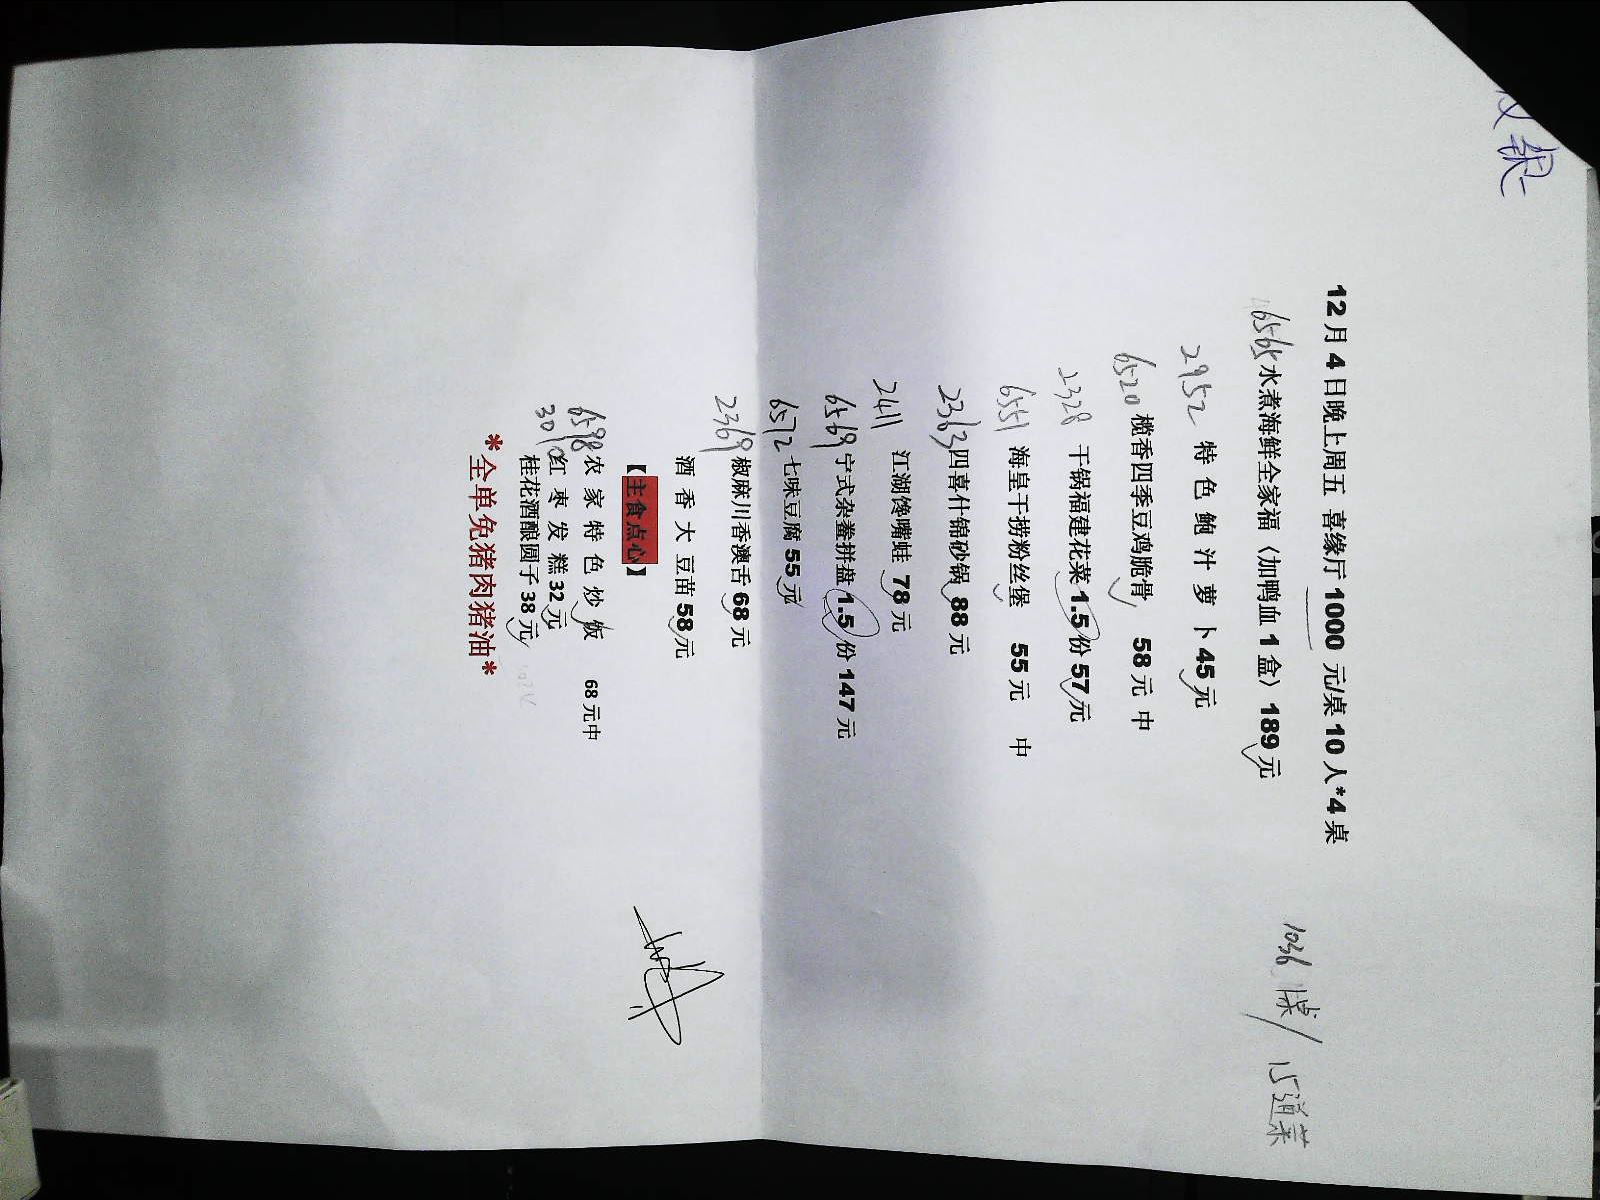 收银
12月4日晚上周五 喜缘厅 1000 元/桌 10 人*4 桌
1036 /桌 / 15道菜
6565 水煮海鲜全家福（加鸭血 1 盒）189 元
2952 特色鲍汁萝卜 45 元
6520 榄香四季豆鸡脆骨 58 元 中
2328 干锅福建花菜 1.5 份 57 元
6551 海皇干捞粉丝煲 55 元 中
2363 四喜什锦砂锅 88 元
2411 江湖馋嘴蛙 78 元
6569 宁式杂鲞拼盘 1.5 份 147 元
6572 七味豆腐 55 元
2369 椒麻川香澳舌 68 元
酒香大豆苗 58 元
【主食点心】
6598 农家特色炒饭 68 元中
3010 红枣发糕 32 元
桂花酒酿圆子 38 元
*全单免猪肉猪油*